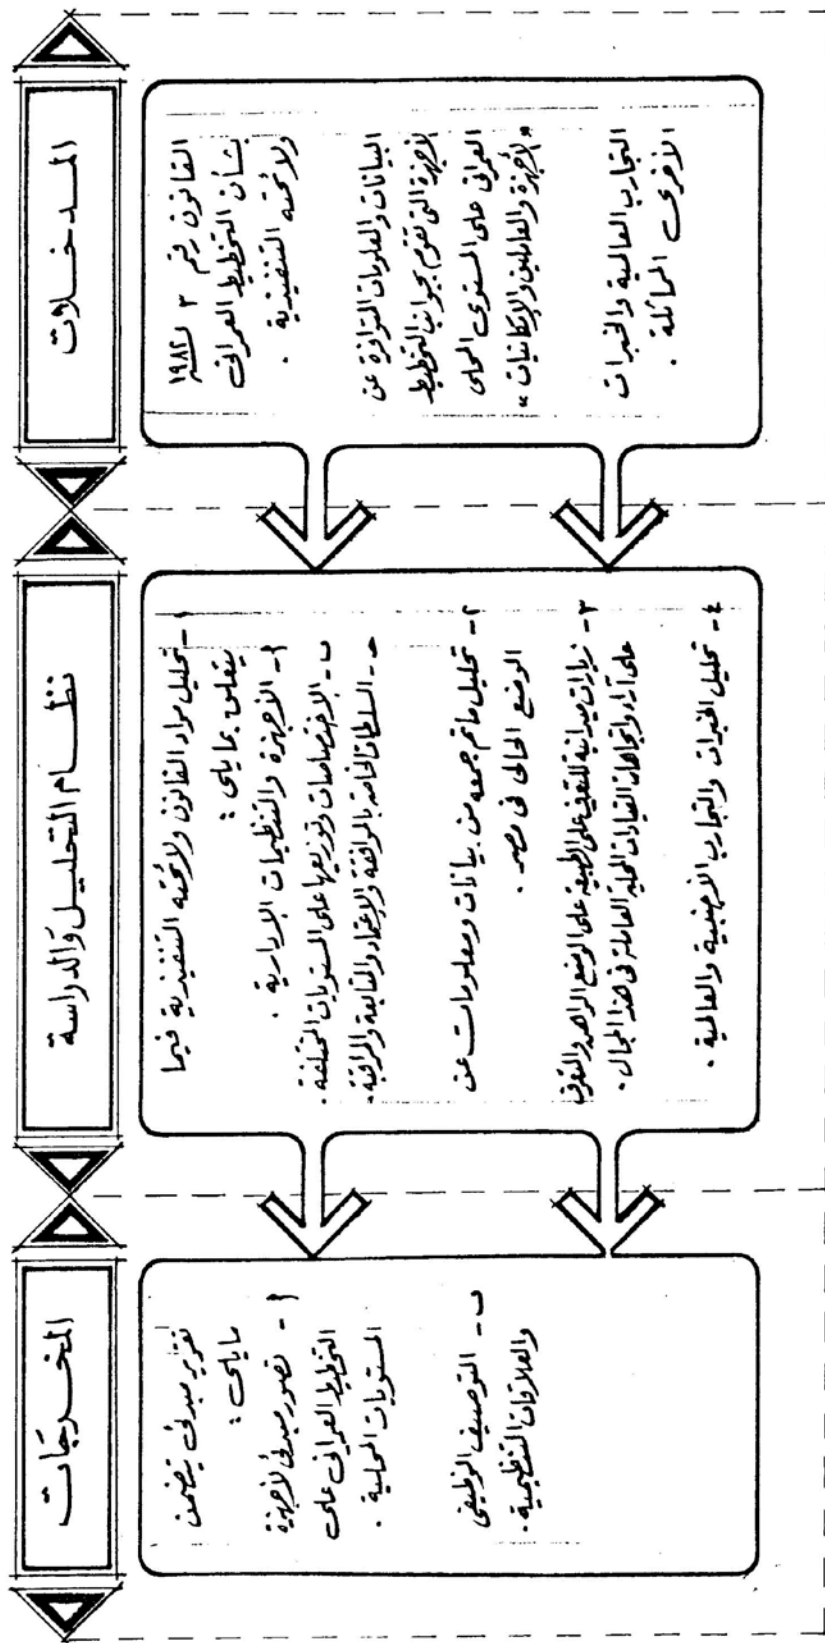 المدخلات
القانون رقم ٣ لسنة ١٩٨٢
بشأن التخطيط العمرانى
ولائحته التنفيذية .
البيانات والمعلومات المتوافرة عن
الأجهزة التى تقوم بجوانب التخطيط
العمرانى على المستوى المحلى
"الأجهزة والعاملين والإمكانيات"
التجارب العالمية والخبرات
الأخرى المماثلة .
نظام التحليل والدراسة
١- تحليل مواد القانون ولائحته التنفيذية فيما
يتعلق بمايلى :
أ- الأجهزة والتنظيمات الإدارية .
ب- الاختصاصات وتوزيعها على المستويات المختلفة .
جـ- السلطات الخاصة بالموافقة والإعتماد والمتابعة والمراقبة .
٢- تحليل ماتم جمعه من بيانات ومعلومات عن
الوضع الحالى فى مصر .
٣- زيارات ميدانية للتعرف على الطبيعة على الوضع الراهن والتعرف
على آراء واتجاهات القيادات المحلية العاملة فى هذا المجال .
٤- تحليل الخبرات والتجارب الأجنبية والعالمية .
المخرجات
تقرير مبدئى يتضمن
مايلى :
أ - تصور مبدئى لأجهزة
التخطيط العمرانى على
المستويات المحلية .
ب - التوصيف الوظيفى
والعلاقات التنظيمية .